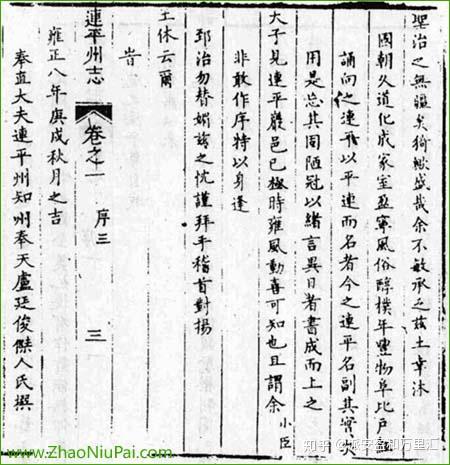 聖治之無疆矣猗歟盛哉余不敏承乏茲土幸沐
國朝久道化成家室盈寧風俗醇樸年豐物阜比戶
誦向之連飛以平連而名者今之連平名副其實矣
用是忘其固陋冠以緒言異日者書成而上之
天子見連平巖邑已極時雍風動喜可知也且謂余小臣
非敢作序特以身逢
郅治勿替媚茲之忱謹拜手稽首對揚
王休云爾
旹
連平州志 卷之一 序三 三
雍正八年庚戌秋月之吉
奉直大夫連平州知州奉天盧廷俊傑人氏撰
www.ZhaoNiuPai.com
知乎